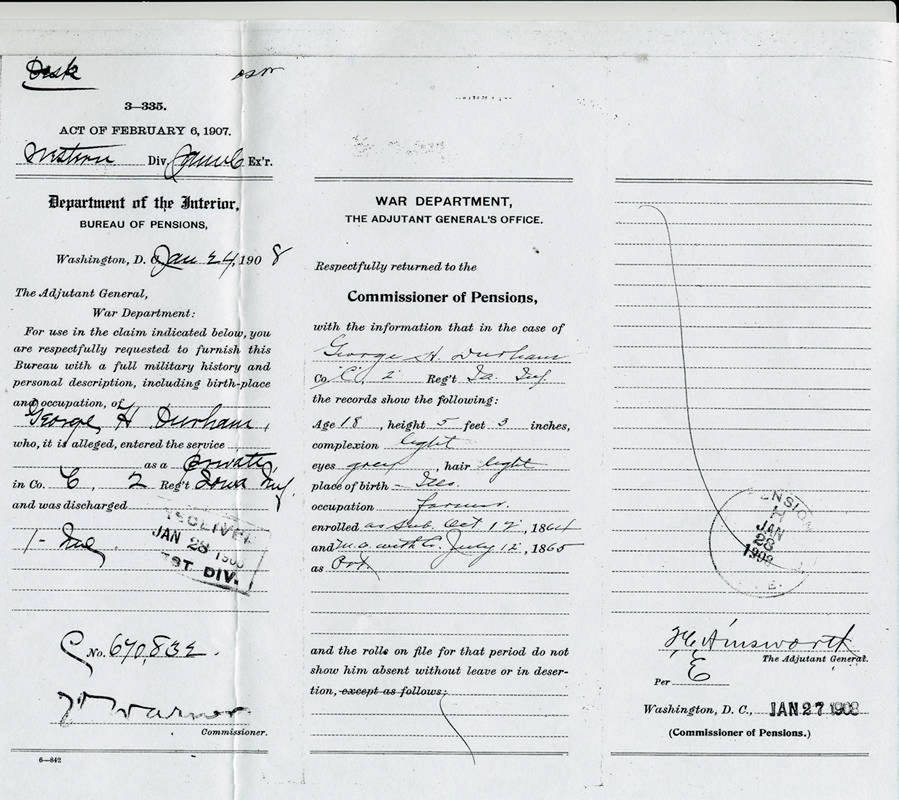 Desk
3—335.
ACT OF FEBRUARY 6, 1907.
Western Div. Ex'r.
Department of the Interior,
BUREAU OF PENSIONS,
Washington, D. C. Jan 24, 1908
The Adjutant General,
War Department:
For use in the claim indicated below, you
are respectfully requested to furnish this
Bureau with a full military history and
personal description, including birth-place
and occupation, of
George H Durham,
who, it is alleged, entered the service
as a private
in Co. C, 2 Reg't Iowa Inf
and was discharged
RECEIVED
JAN 28 1908
EST DIV.
C No. 670,832.
Warner
Commissioner.
6—842
WAR DEPARTMENT,
THE ADJUTANT GENERAL'S OFFICE.
Respectfully returned to the
Commissioner of Pensions,
with the information that in the case of
George H. Durham
Co. "C", 2 Reg't Ia. Inf
the records show the following:
Age 18, height 5 feet 3 inches,
complexion light
eyes grey, hair light
place of birth - Ills.
occupation farmer
enrolled as sub. Oct. 12, 1864
and m.o. with Co. July 12, 1865
as Pvt.
and the rolls on file for that period do not
show him absent without leave or in deser-
tion, except as follows:
PENSION
JAN
28
1908
F C Ainsworth
The Adjutant General.
Per E
Washington, D. C., JAN 27 1908
(Commissioner of Pensions.)